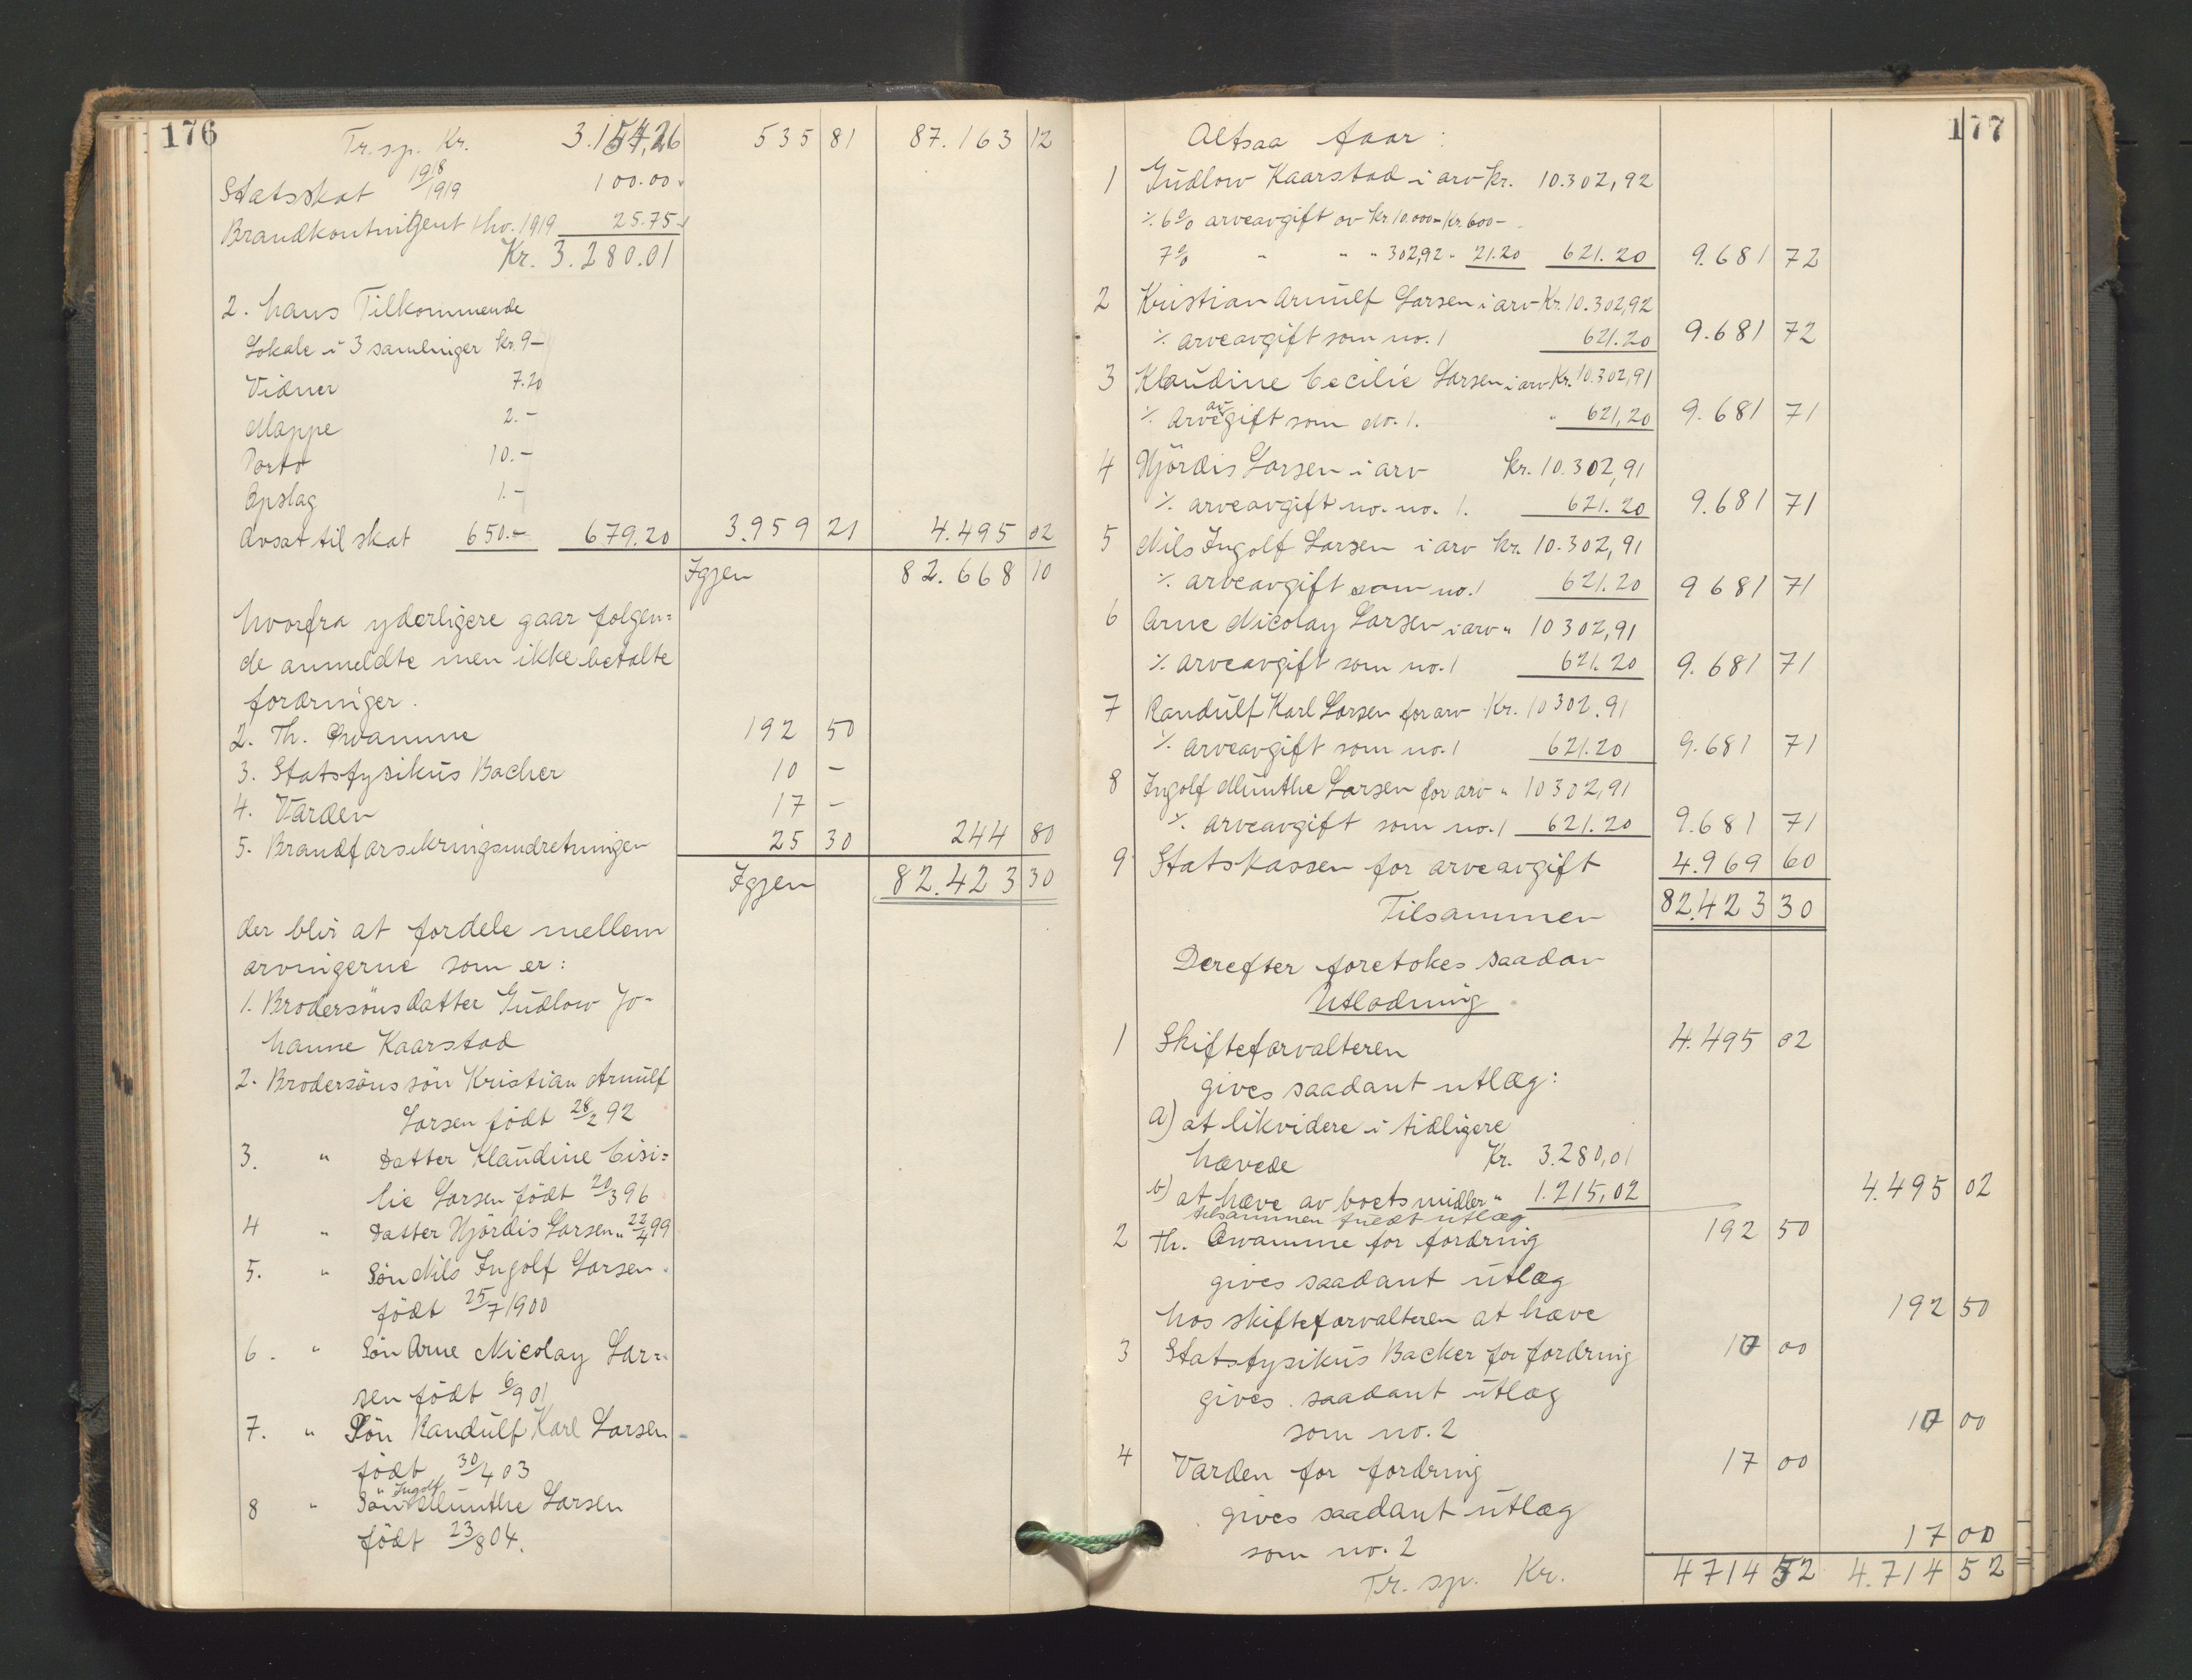 176
Tr. sp. Kr. 3.154,26 535 81 87.163 12
Statsskat 1918/1919 100.00
Brandkontingent 1 hv. 1919 25.75
Kr. 3.280.01
2. hans Tilkommende
Lokale i 3 samlinger Kr. 9-
Vidner 7.20
Mappe 2.-
Porto 10.-
Opslag 1.-
Avsat til skat 650.- 679.20 3.959 21 4.495 02
Igjen 82.668 10
hvorfra yderligere gaar folgen=
de anmeldte men ikke betalte
fordringer.
2. Th. Qvamme 192 50
3. Statsfysikus Backer 10 -
4. Varden 17 -
5. Brandforsikringsindretningen 25 30 244 80
Igjen 82.423 30
der blir at fordele mellem
arvingerne som er:
1. Brodersöns datter Gudlow Jo-
hanne Kaarstad
2. Brodersöns sön Kristian Arnulf
Larsen födt 28/2 92
3. " Datter Klaudine Cisi=
lie Larsen födt 20/3 96
4 " Datter Hjördis Larsen " 22/4 99
5. " Sön Nils Ingolf Larsen
födt 25/7 1900
6. " Sön Arne Nicolay Lar=
sen födt 6/9 01
7. " Sön Randulf Karl Larsen
födt 30/4 03
8 " Sön Ingolf Munthe Larsen
födt 23/8 04.
177
Altsaa faar:
1 Gudlow Kaarstad i arv Kr. 10.302,92
% 6% arveavgift av Kr 10.000- Kr. 600-
7% " " " 302,92 " 21.20 621.20 9.681 72
2 Kristian Arnulf Larsen i arv Kr. 10.302,92
% arveavgift som no. 1 621.20 9.681 72
3 Klaudine Cecilie Larsen i arv Kr. 10.302,91
% Arveavgift som No. 1. " 621,20 9.681 71
4 Hjördis Larsen i arv Kr. 10.302,91
% arveavgift no. no. 1. 621.20 9.681 71
5 Nils Ingolf Larsen i arv Kr. 10.302,91
% arveavgift som no. 1 621.20 9 681 71
6 Arne Nicolay Larsen i arv " 10 302,91
% arveavgift som no. 1 621.20 9.681 71
7 Randulf Karl Larsen for arv Kr. 10 302.91
% arveavgift som no. 1 621.20 9.681 71
8 Ingolf Munthe Larsen for arv " 10 302,91
% arveavgift som no. 1 621.20 9.681 71
9 Statskassen for arveavgift 4.969 60
Tilsammen 82.423 30
Derefter foretokes saadan
Utlodning
1 Skifteforvalteren 4.495 02
gives saadant utlæg:
a) at likvidere i tidligere
hævede Kr. 3.280,01
b) at hæve av boets midler " 1.215,02 4.495 02
tilsammen fuldt utlæg
2 Th. Qvamme for fordring 192 50
gives saadant utlæg
hos skifteforvalteren at hæve 192 50
3 Statsfysikus Backer for fordring 10 00
gives saadant utlæg
som no. 2 10 00
4 Varden for fordring 17 00
gives saadant utlæg
som no. 2 17 00
Tr. sp. Kr. 4714 52 4.714 52